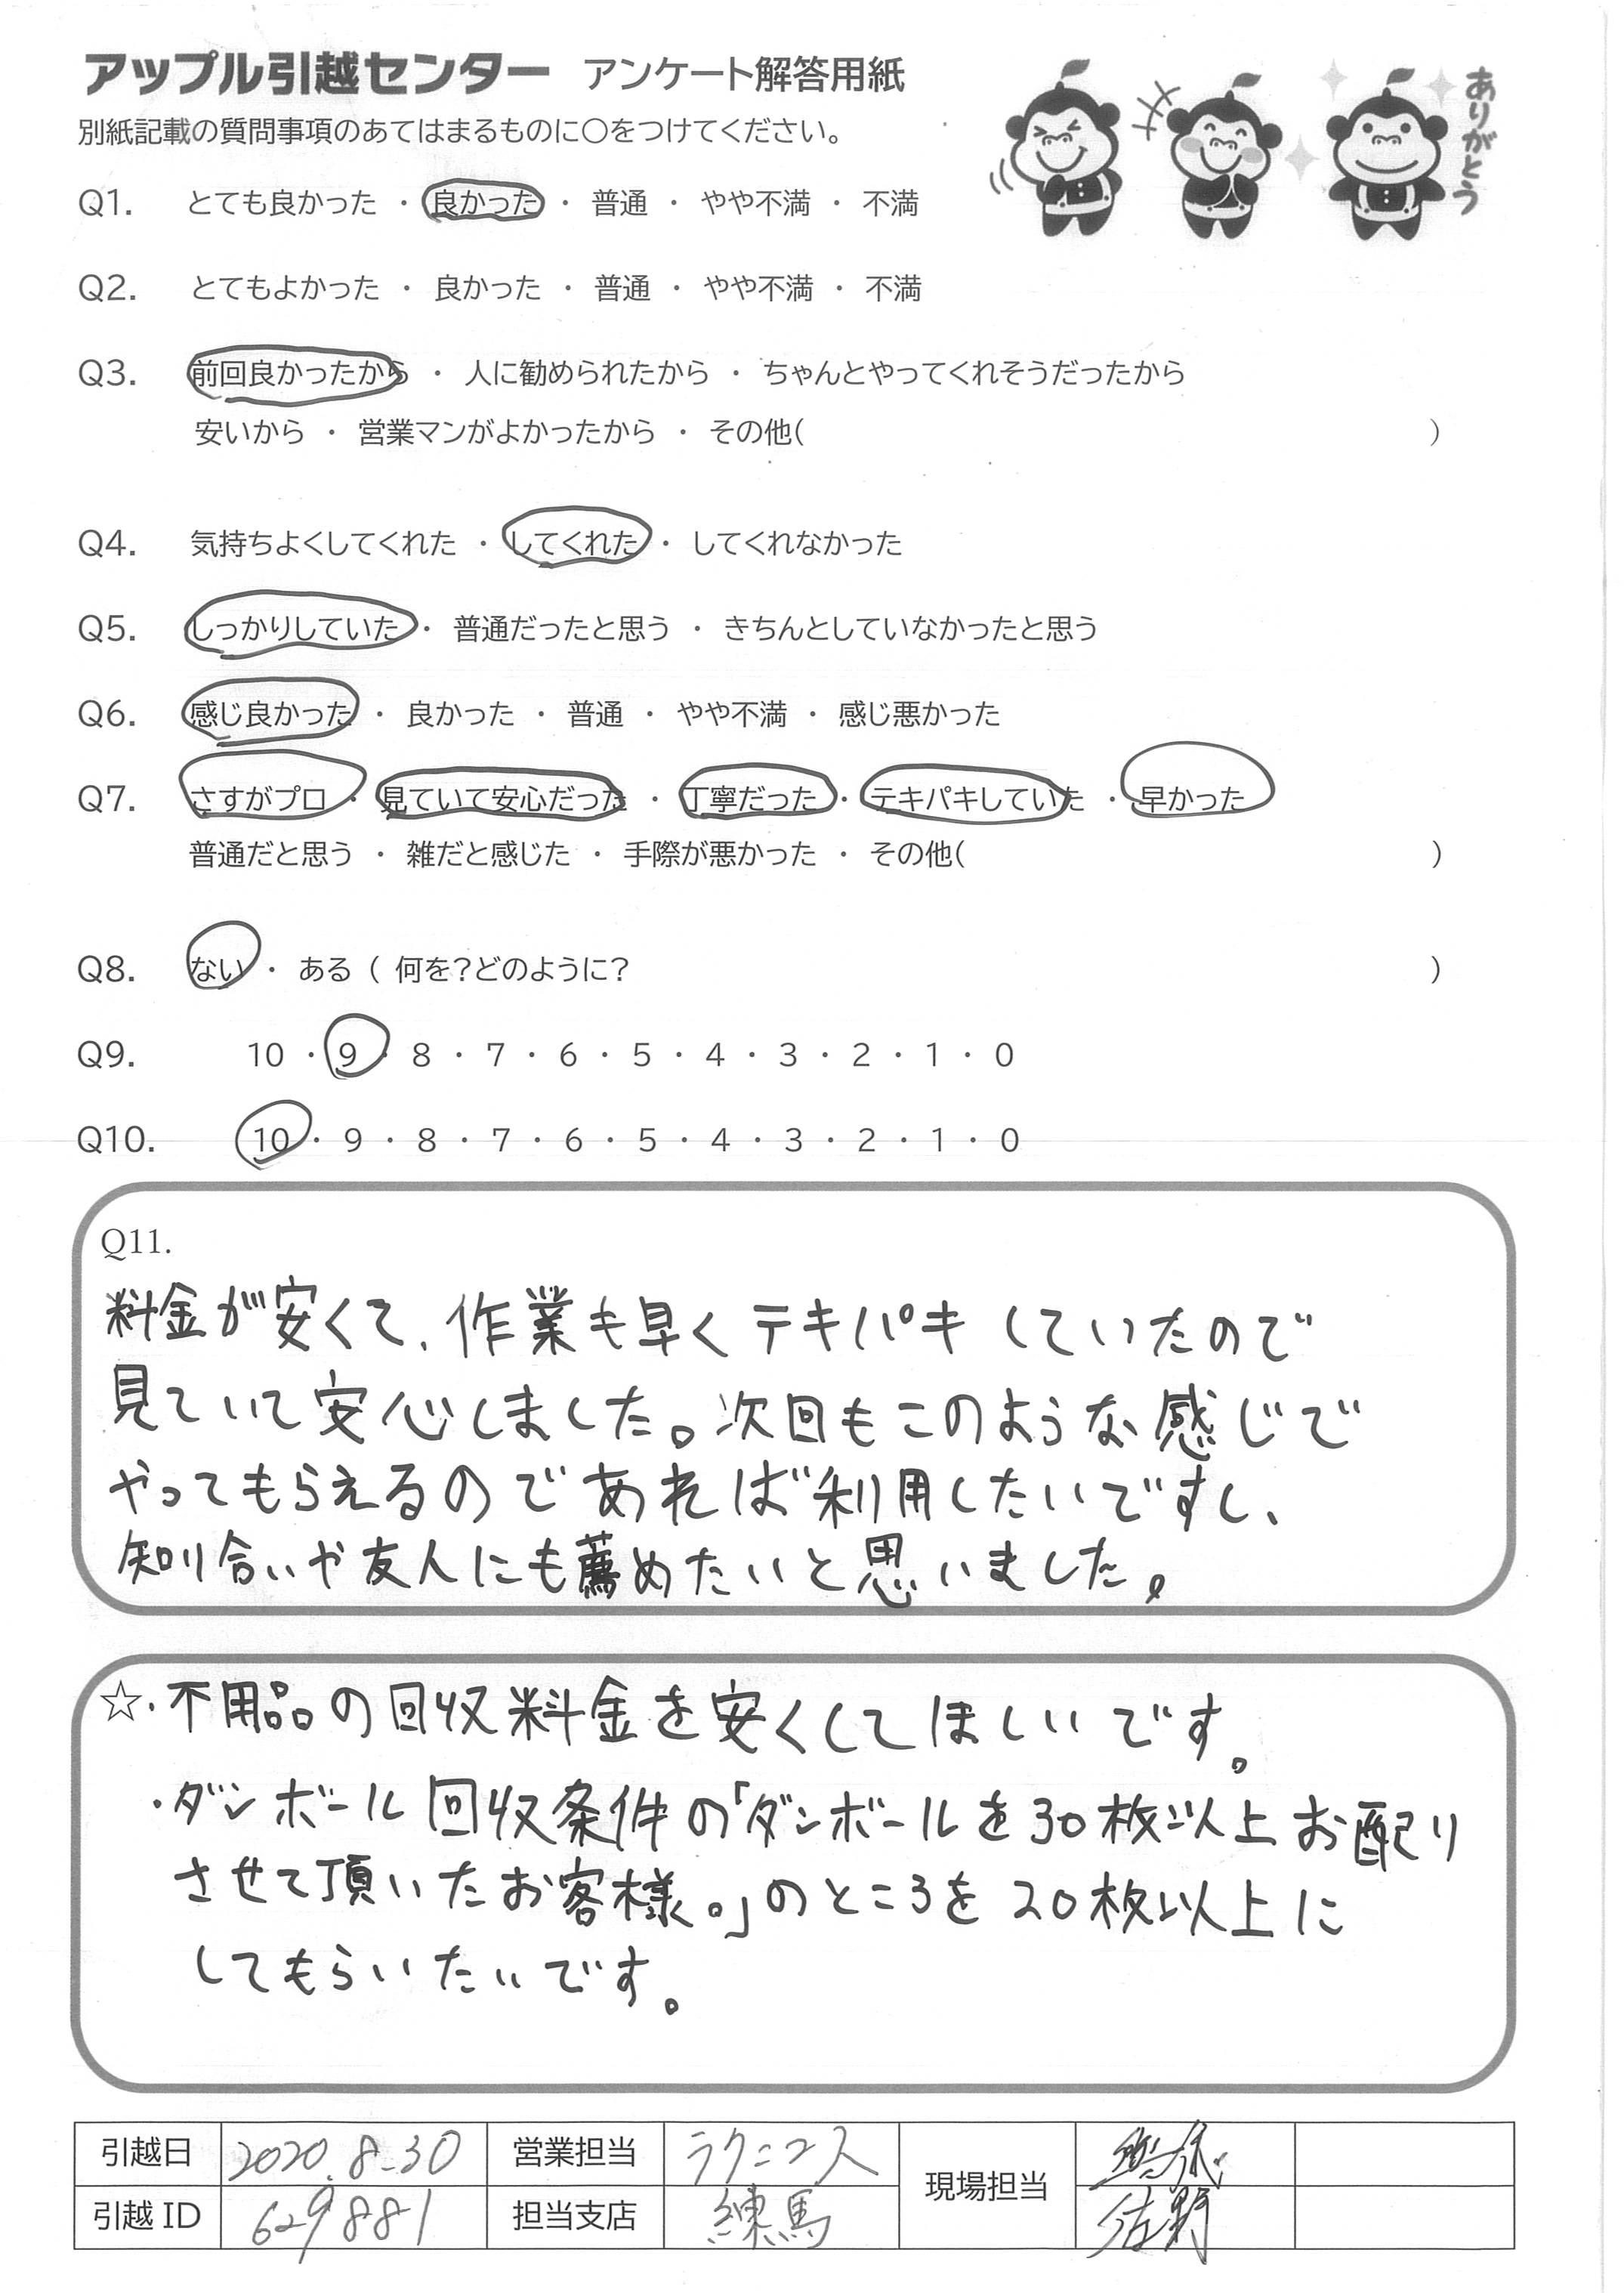 アップル引越センター アンケート解答用紙
別紙記載の質問事項のあてはまるものに〇をつけてください。
ありがとう
Q1. とても良かった ・ 良かった ・ 普通 ・ やや不満 ・ 不満
Q2. とてもよかった ・ 良かった ・ 普通 ・ やや不満 ・ 不満
Q3. 前回良かったから ・ 人に勧められたから ・ ちゃんとやってくれそうだったから
安いから ・ 営業マンがよかったから ・ その他( )
Q4. 気持ちよくしてくれた ・ してくれた ・ してくれなかった
Q5. しっかりしていた ・ 普通だったと思う ・ きちんとしていなかったと思う
Q6. 感じ良かった ・ 良かった ・ 普通 ・ やや不満 ・ 感じ悪かった
Q7. さすがプロ ・ 見ていて安心だった ・ 丁寧だった ・ テキパキしていた ・ 早かった
普通だと思う ・ 雑だと感じた ・ 手際が悪かった ・ その他( )
Q8. ない ・ ある ( 何を?どのように? )
Q9. 10 ・ 9 ・ 8 ・ 7 ・ 6 ・ 5 ・ 4 ・ 3 ・ 2 ・ 1 ・ 0
Q10. 10 ・ 9 ・ 8 ・ 7 ・ 6 ・ 5 ・ 4 ・ 3 ・ 2 ・ 1 ・ 0
Q11.
料金が安くて、作業も早くテキパキしていたので
見ていて安心しました。次回もこのような感じで
やってもらえるのであれば利用したいですし、
知り合いや友人にも薦めたいと思いました。
☆・不用品の回収料金を安くしてほしいです。
・ダンボール回収条件の「ダンボールを30枚以上お配り
させて頂いたお客様。」のところを20枚以上に
してもらいたいです。
引越日 2020.8.30 営業担当 ラクニコス 現場担当
引越 ID 629881 担当支店 練馬 佐野